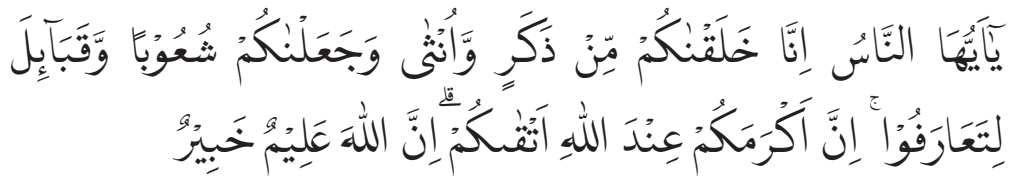 يٰۤاَيُّهَا النَّاسُ اِنَّا خَلَقْنٰكُمْ مِّنْ ذَكَرٍ وَّاُنْثٰى وَجَعَلْنٰكُمْ شُعُوْبًا وَّقَبَآئِلَ
لِتَعَارَفُوْا ۚ اِنَّ اَكْرَمَكُمْ عِنْدَ اللّٰهِ اَتْقٰىكُمْ ۗ اِنَّ اللّٰهَ عَلِيْمٌ خَبِيْرٌ